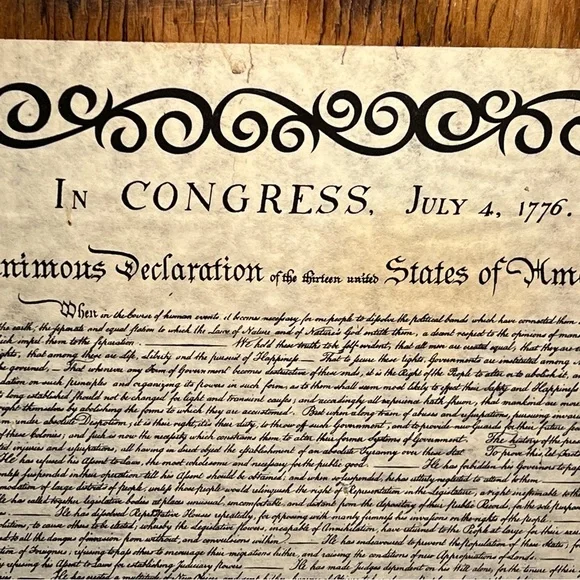 IN CONGRESS, JULY 4, 1776.
nimous Declaration of the thirteen united States of Ame
When in the Course of human events, it becomes necessary for one people to dissolve the political bands which have connected them
the earth, the separate and equal station to which the Laws of Nature and of Nature's God entitle them, a decent respect to the opinions of man
impel them to the separation. We hold these truths to be self-evident, that all men are created equal, that they are
rights, that among these are Life, Liberty and the pursuit of Happiness — That to secure these rights, Governments are instituted among
the governed, — That whenever any Form of Government becomes destructive of these ends, it is the Right of the People to alter or to abolish it,
dation on such principles and organizing its powers in such form, as to them shall seem most likely to effect their Safety and Happiness
long established should not be changed for light and transient causes; and accordingly all experience hath shewn, that mankind are
right themselves by abolishing the forms to which they are accustomed. But when a long train of abuses and usurpations, pursuing
under absolute Despotism, it is their right, it is their duty, to throw off such Government, and to provide new Guards for their future
of these Colonies; and such is now the necessity which constrains them to alter their former Systems of Government. The history of the
injuries and usurpations, all having in direct object the establishment of an absolute Tyranny over these States. To prove this, let Facts
He has refused his Assent to Laws, the most wholesome and necessary for the public good. He has forbidden his Governors to
suspended in their operation till his Assent should be obtained; and when so suspended, he has utterly neglected to attend to them.
modation of large districts of people, unless those people would relinquish the right of Representation in the Legislature, a right inestimable to
He has called together legislative bodies at places unusual, uncomfortable, and distant from the depository of their public Records, for the sole purpose
He has dissolved Representative Houses repeatedly, for opposing with manly firmness his invasions on the rights of the people.
to cause others to be elected; whereby the Legislative powers, incapable of Annihilation, have returned to the People at large for their
to all the dangers of invasion from without, and convulsions within. He has endeavoured to prevent the Population of these States; for
of Foreigners; refusing to pass others to encourage their migrations hither, and raising the conditions of new Appropriations of Lands.
refusing his Assent to Laws for establishing Judiciary powers. He has made Judges dependent on his Will alone, for the tenure of their
He has erected a multitude of New